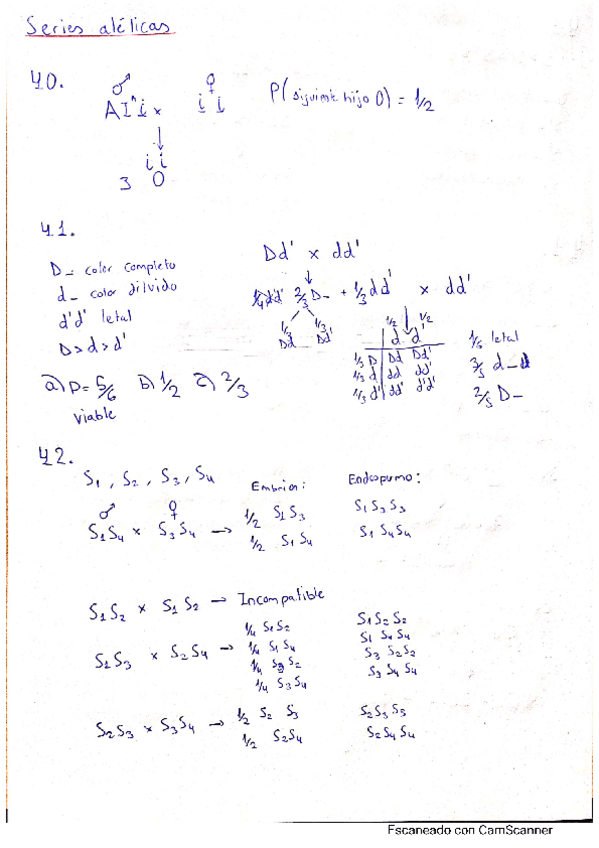 Series alélicas
40.
♂ ♀
AIᴬi x ii P(siguiente hijo O) = 1/2
↓
ii
3 O
41.
D_ color completo
d_ color diluido
d'd' letal
D>d>d'
a) p= 5/6 b) 1/2 c) 2/3
viable
Dd' x dd'
↓
2/3 D_ + 1/3 dd' x dd'
1/3 Dd 1/3 Dd'
1/2 d 1/2 d'
1/3 D Dd Dd'
1/3 d dd dd'
1/3 d' dd' d'd'
1/6 letal
3/5 d_
2/5 D_
42.
S1, S2, S3, S4 Embrion: Endospermo:
♂ ♀
S1S4 x S3S4 → 1/2 S1S3 S1S3S3
1/2 S1S4 S1S4S4
S1S2 x S1S2 → Incompatible
S1S3 x S2S4 → 1/4 S1S2 S1S2S2
1/4 S1S4 S1S4S4
1/4 S3S2 S3S2S2
1/4 S3S4 S3S4S4
S2S3 x S3S4 → 1/2 S2 S3 S2S3S3
1/2 S2S4 S2S4S4
Escaneado con CamScanner